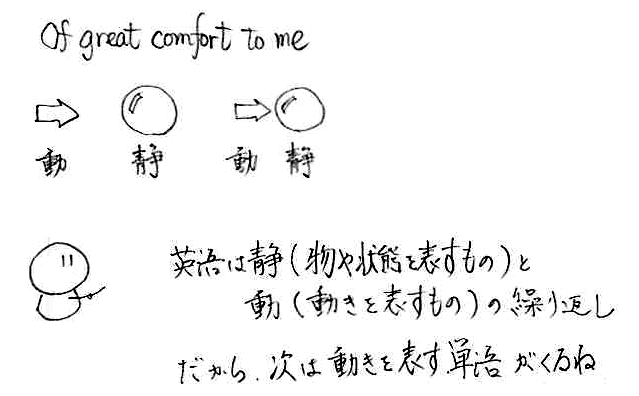 Of great comfort to me
動 静 動 静
英語は静(物や状態を表すもの)と
動(動きを表すもの)の繰り返し
だから、次は動きを表す単語がくるね